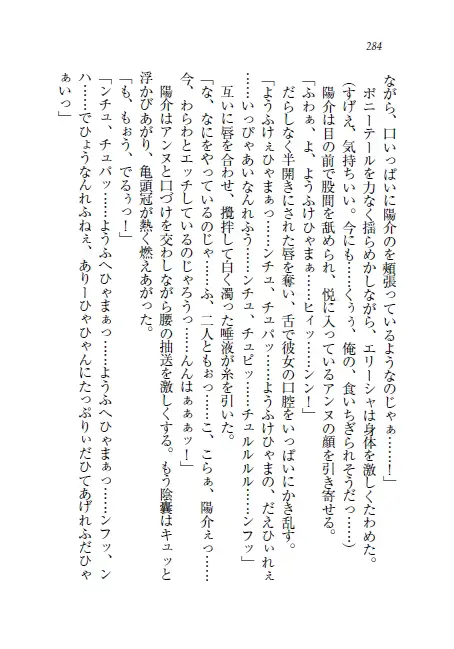 284
ながら、口いっぱいに陽介のを頬張っているようなのじゃぁ……！」
ポニーテールを力なく揺らめかしながら、エリーシャは身体を激しくたわめた。
(すげえ、気持ちいい。今にも……くぅぅ、俺の、食いちぎられそうだっ……)
陽介は目の前で股間を舐められ、悦に入っているアンヌの顔を引き寄せる。
「ふわぁ、よ、ようふけひゃまぁ……ヒィッ……ンン！」
だらしなく半開きにされた唇を奪い、舌で彼女の口腔をいっぱいにかき乱す。
「ようふけぇひゃまぁっ……ンチュ、チュパッ……ようふけひゃまの、だえひぃれぇ
……いっぴゃあいなんれふう……ンチュ、チュピッ……チュルルルル……ンフッ」
互いに唇を合わせ、攪拌して白く濁った唾液が糸を引いた。
「な、なにをやっているのじゃ……ふ、二人ともぉっ……こ、こらぁ、陽介ぇっ……
今、わらわとエッチしているのじゃろうっ……んんはぁぁぁッ！」
陽介はアンヌと口づけを交わしながら腰の抽送を激しくする。もう陰嚢はキュッと
浮かびあがり、亀頭冠が熱く燃えあがった。
「も、もぉう、でるぅっ！」
「ンチュ、チュパッ……ようふへひゃまぁっ……ようふへひゃまぁっ……ンフッ、ン
ハ……でひょうなんれふねぇ、ありーひゃひゃんにたっぷりぃだひてあげれふだひゃ
ぁいっ」